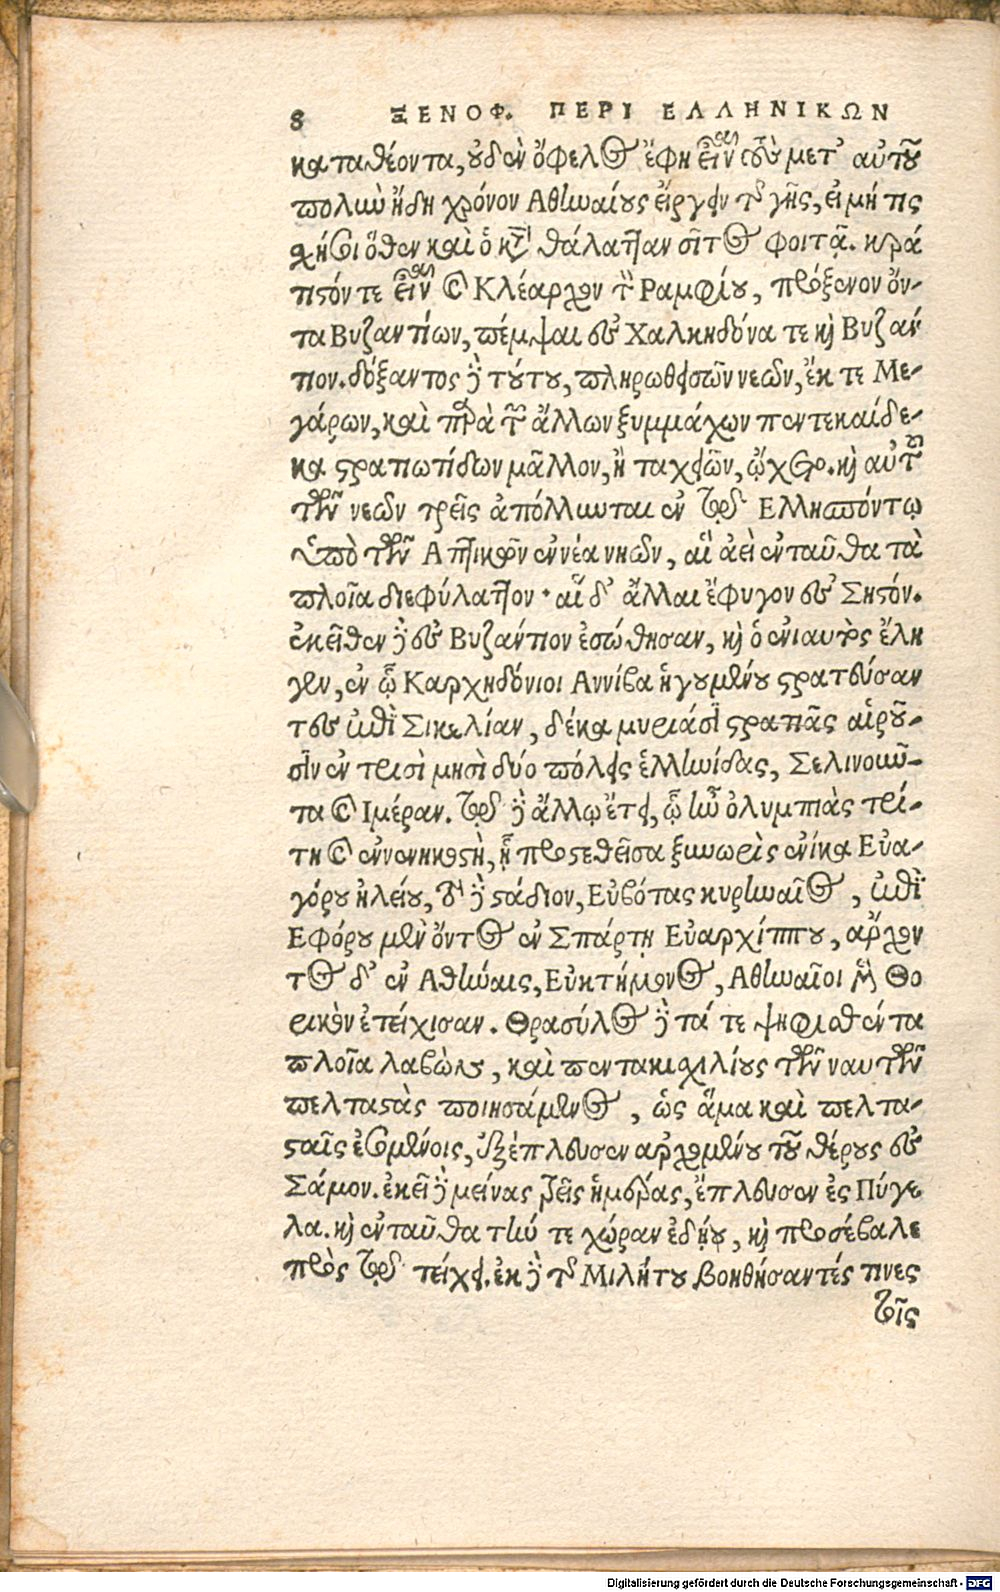 8 ΞΕΝΟΦ. ΠΕΡΙ ΕΛΛΗΝΙΚΩΝ
καταθέοντα, οὐδὲν ὄφελος ἔφη εἶναι τοὺς μετ' αὐτοῦ
πολὺν ἤδη χρόνον Αθηναίους εἴργειν τῆς γῆς, εἰ μή τις
χήσοι ὅθεν καὶ ὁ κατὰ θάλατταν σῖτος φοιτᾷ. κρά
τιστόν τε εἶναι καὶ Κλέαρχον τὸν Ραμφίου, πρόξενον ὄν-
τα Βυζαντίων, πέμψαι εἰς Χαλκηδόνα τε καὶ Βυζάν
τιον. δόξαντος δὲ τούτου, πληρωθεισῶν νεῶν, ἔκ τε Με-
γάρων, καὶ παρὰ τῶν ἄλλων ξυμμάχων πεντεκαίδε-
κα στρατιωτίδων μᾶλλον, ἢ ταχειῶν, ᾤχετο. καὶ αὐτῷ
τῶν νεῶν τρεῖς ἀπόλλυνται ἐν τῷ Ελλησπόντῳ
ὑπὸ τῶν Αττικῶν ἐννέα νηῶν, αἳ ἀεὶ ἐνταῦθα τὰ
πλοῖα διεφύλαττον· αἱ δ' ἄλλαι ἔφυγον εἰς Σηστόν.
ἐκεῖθεν δὲ εἰς Βυζάντιον ἐσώθησαν, καὶ ὁ ἐνιαυτὸς ἔλη
γεν, ἐν ᾧ Καρχηδόνιοι Αννίβα ἡγουμένου στρατεύσαν
τες ἐπὶ Σικελίαν, δέκα μυριάσι στρατιᾶς αἱροῦ-
σιν ἐν τρισὶ μησὶ δύο πόλεις ἑλληνίδας, Σελινοῦν-
τα καὶ Ιμέραν. τῷ δὲ ἄλλῳ ἔτει, ᾧ ἦν ὀλυμπιὰς τρί-
τη καὶ ἐννενηκοστὴ, ᾗ προστεθεῖσα ξυνωρὶς ἐνίκα Εὐα-
γόρου ἠλείου, τὸ δὲ στάδιον, Εὐβότας κυρηναῖος, ἐπὶ
Εφόρου μὲν ὄντος ἐν Σπάρτῃ Εὐαρχίππου, ἄρχον
τος δ' ἐν Αθήναις, Εὐκτήμονος, Αθηναῖοι μὲν Θο
ρικὸν ἐτείχισαν. Θρασύλος δὲ τά τε ψηφισθέντα
πλοῖα λαβὼν, καὶ πεντακιχιλίους τῶν ναυτῶν
πελταστὰς ποιησάμενος, ὡς ἅμα καὶ πελτα-
σταῖς ἐσομένοις, ἐξέπλευσεν ἀρχομένου τοῦ θέρους εἰς
Σάμον. ἐκεῖ δὲ μείνας τρεῖς ἡμέρας, ἔπλευσεν ἐς Πύγε
λα. καὶ ἐνταῦθα τήν τε χώραν ἐδῄου, καὶ προσέβαλε
πρὸς τῷ τείχει. ἐκ δὲ τῆς Μιλήτου βοηθήσαντές τινες
τοῖς
Digitalisierung gefördert durch die Deutsche Forschungsgemeinschaft - DFG